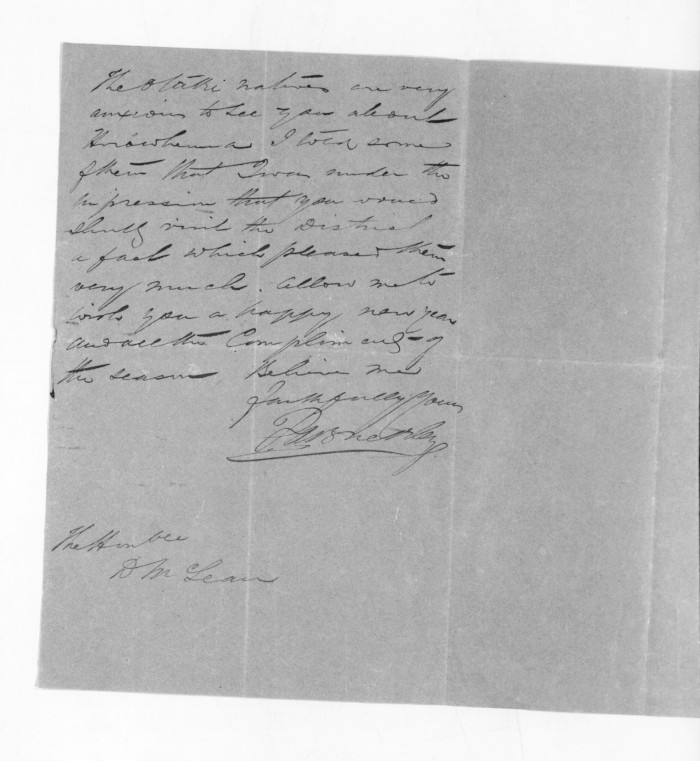 The Otaki natives are very
anxious to see you about
Horowhenua I told some
of them that I was under the
impression that you would
shortly visit the District
a fact which pleased them
very much. Allow me to
wish you a happy new year
and all the Compliments of
the season Believe me
faithfully yours
The Honble
D McLean